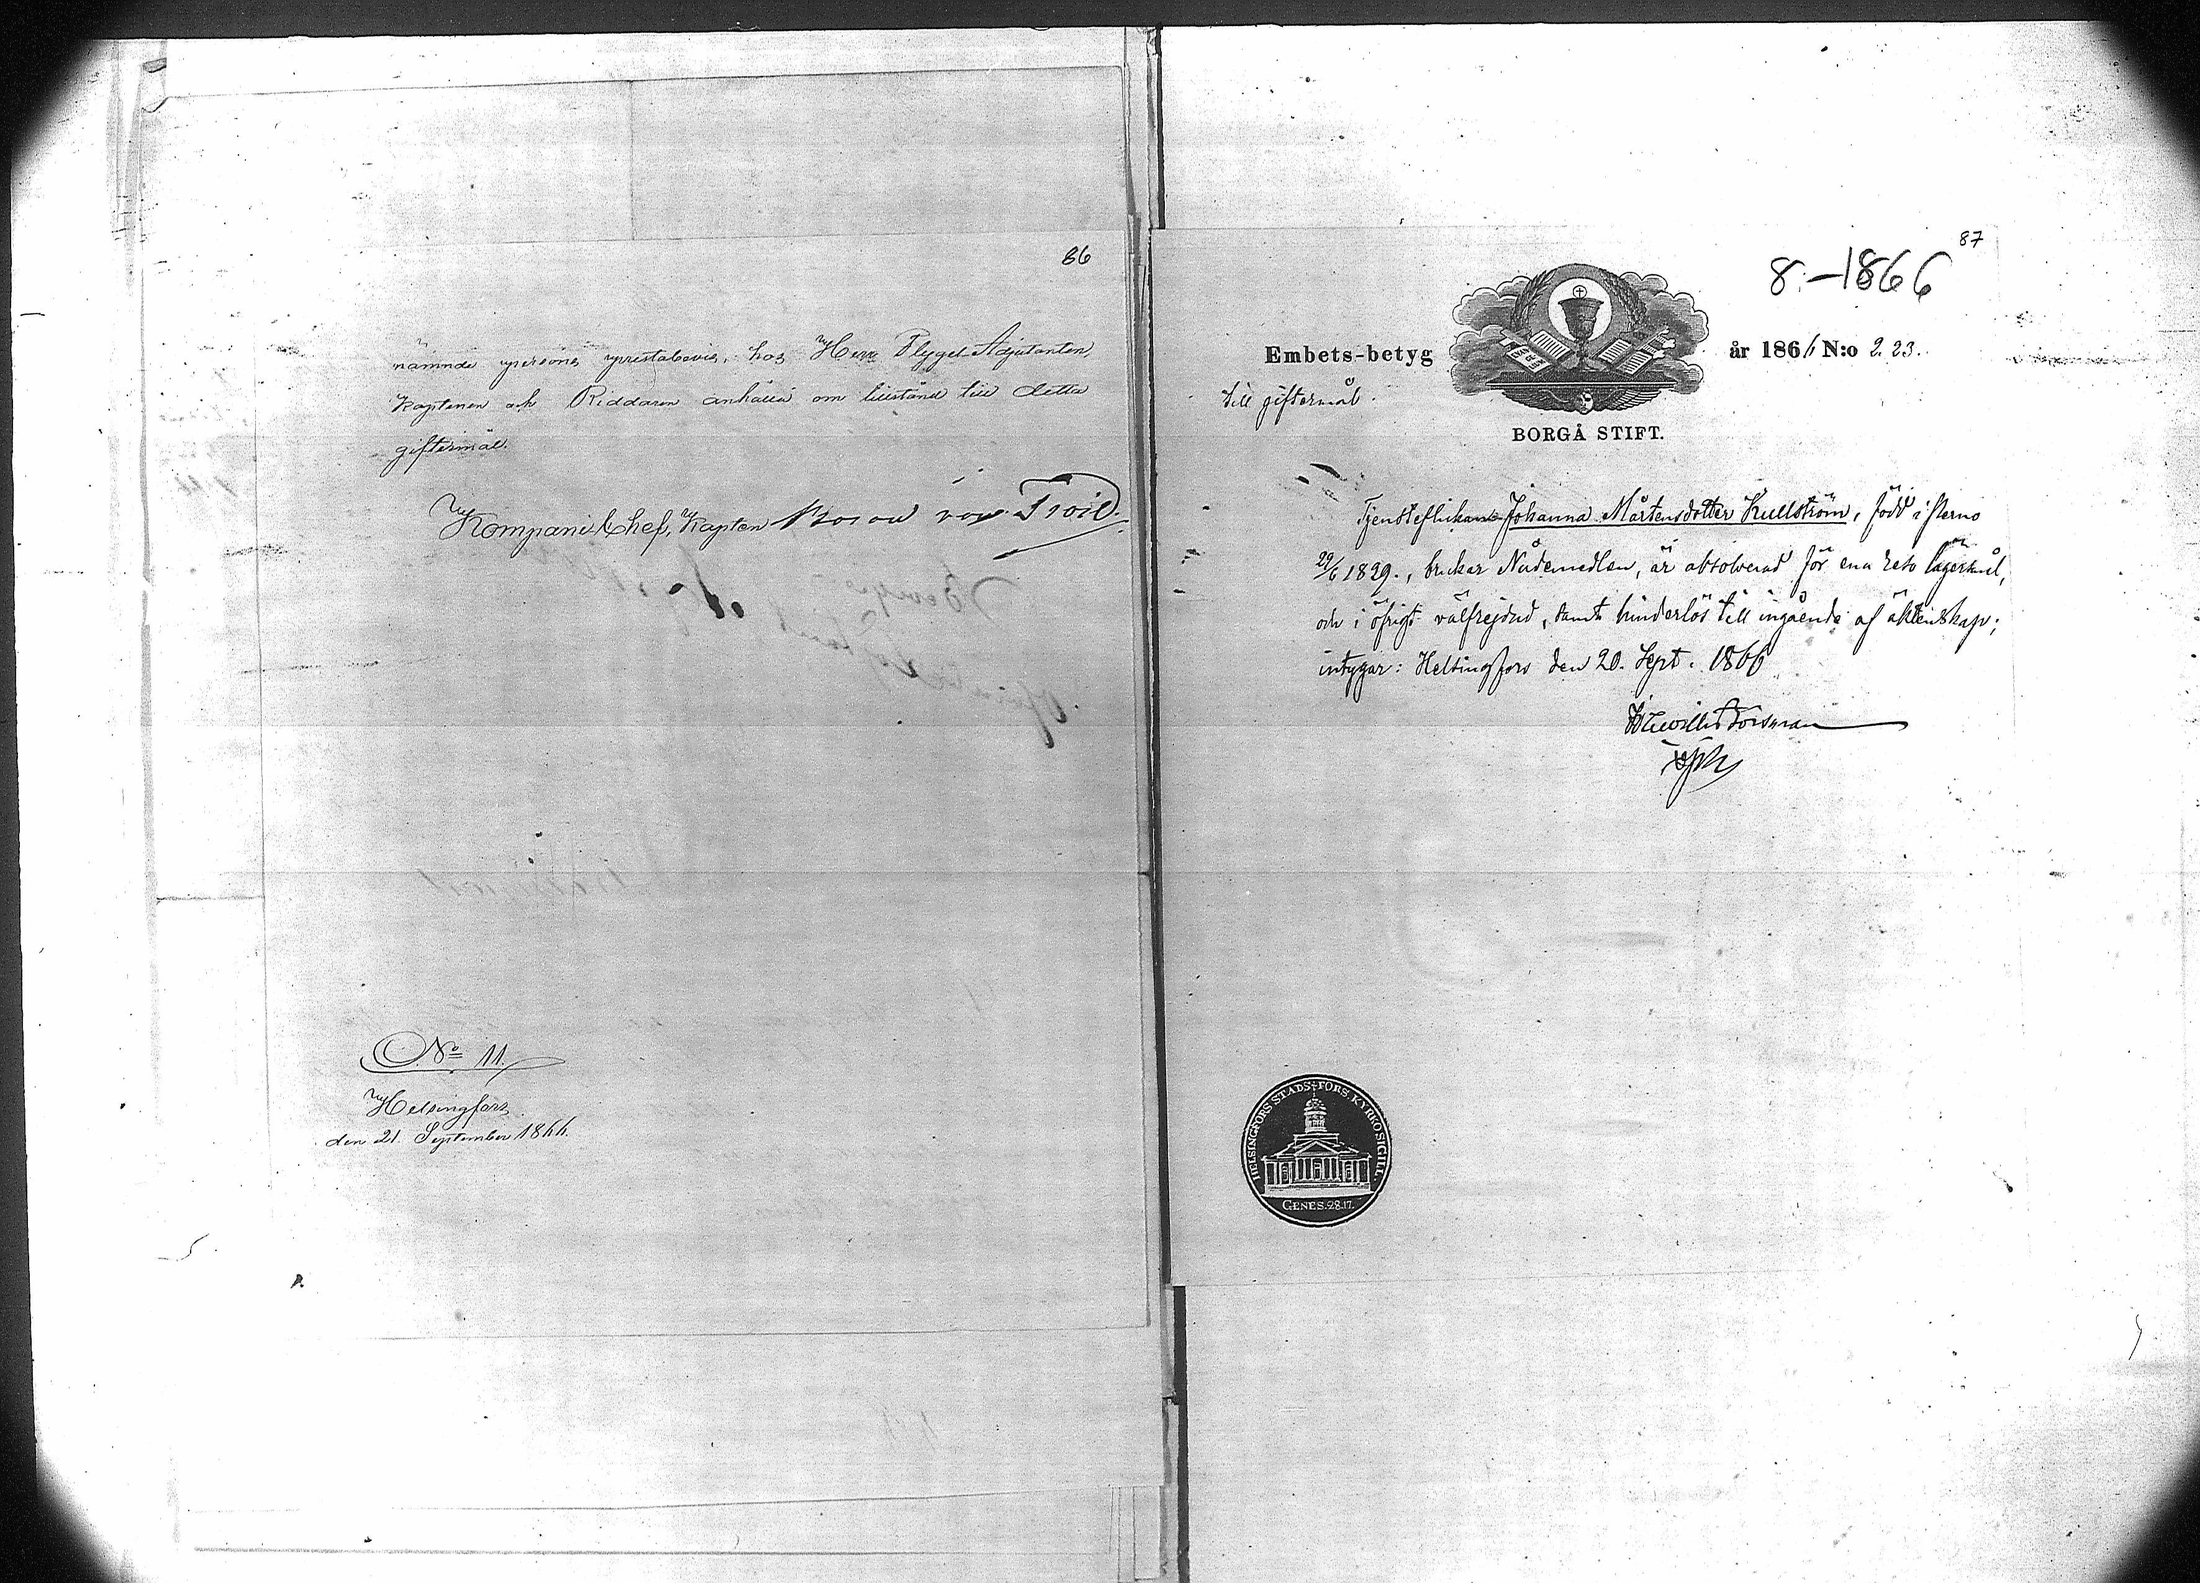 86
nämnde persons prestabevis, hos Herr Flygel Adjutanten,
Kaptenen och Riddaren anhålla om tillstånd till detta
giftermål.
Kompani Chef, Kapten Baron von Troil.
No 11.
Helsingfors
den 21 September 1866.
87
8.-1866
Embets-betyg
år 1866 N:o 223.
till giftermål.
BORGÅ STIFT.
Tjensteflickan Johanna Mårtensdotter Kullström, född i Perno
29/6 1839., brukar Nådemedlen, är absolverad för ena reso lägersmål,
och i öfrigt välfrejdad, samt hinderlös till ingående af äktenskap;
intygar: Helsingfors den 20. Sept. 1866
Forsman
HELSINGFORS STADS FÖRS. KYRKO SIGILL.
GENES. 28.17.